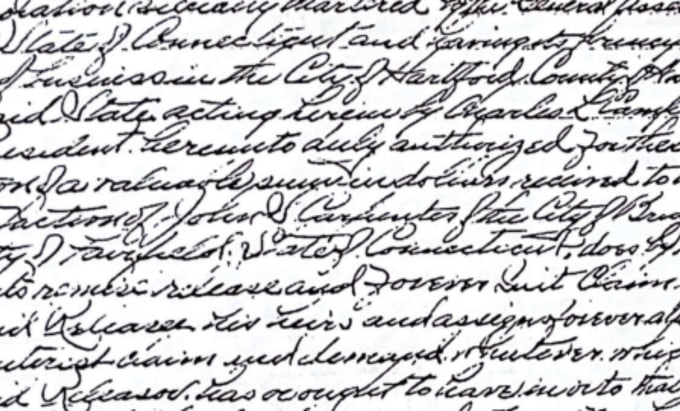 poration specially chartered by the General Assem
State of Connecticut and having its princip
of business in the City of Hartford County of
aid State, acting herein by Charles L
esident hereunto duly authorized for the
on of a valuable sum in dollars received to
faction of John S Carpenter of the City of Brid
ty of Fairfield, State of Connecticut, does by
ts remise release and forever Quit Claim
aid Releasee his heirs and assigns forever all
nterest claim and demand whatever whic
id Releasor has or ought to have in or to